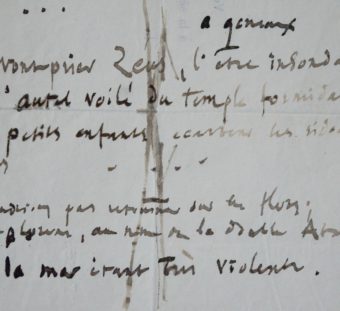 ... a genoux
vont prier Zeus, l'être insonda
'autel voilé du temple formida
petits enfants, écartons les rid
. . . .
pas sur les flots,
, au nom de la Belle
la mar étant très violente.